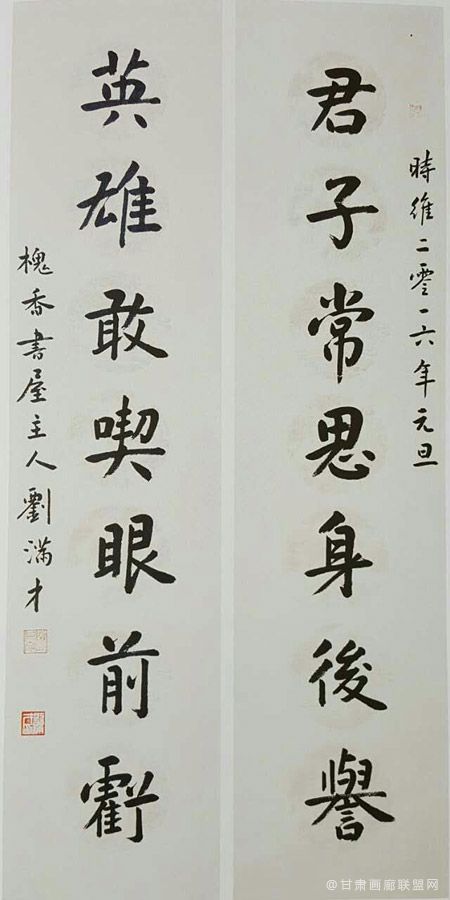 時維二零一六年元旦
君子常思身後譽
英雄敢喫眼前虧
槐香書屋主人劉滿才
@甘肃画廊联盟网